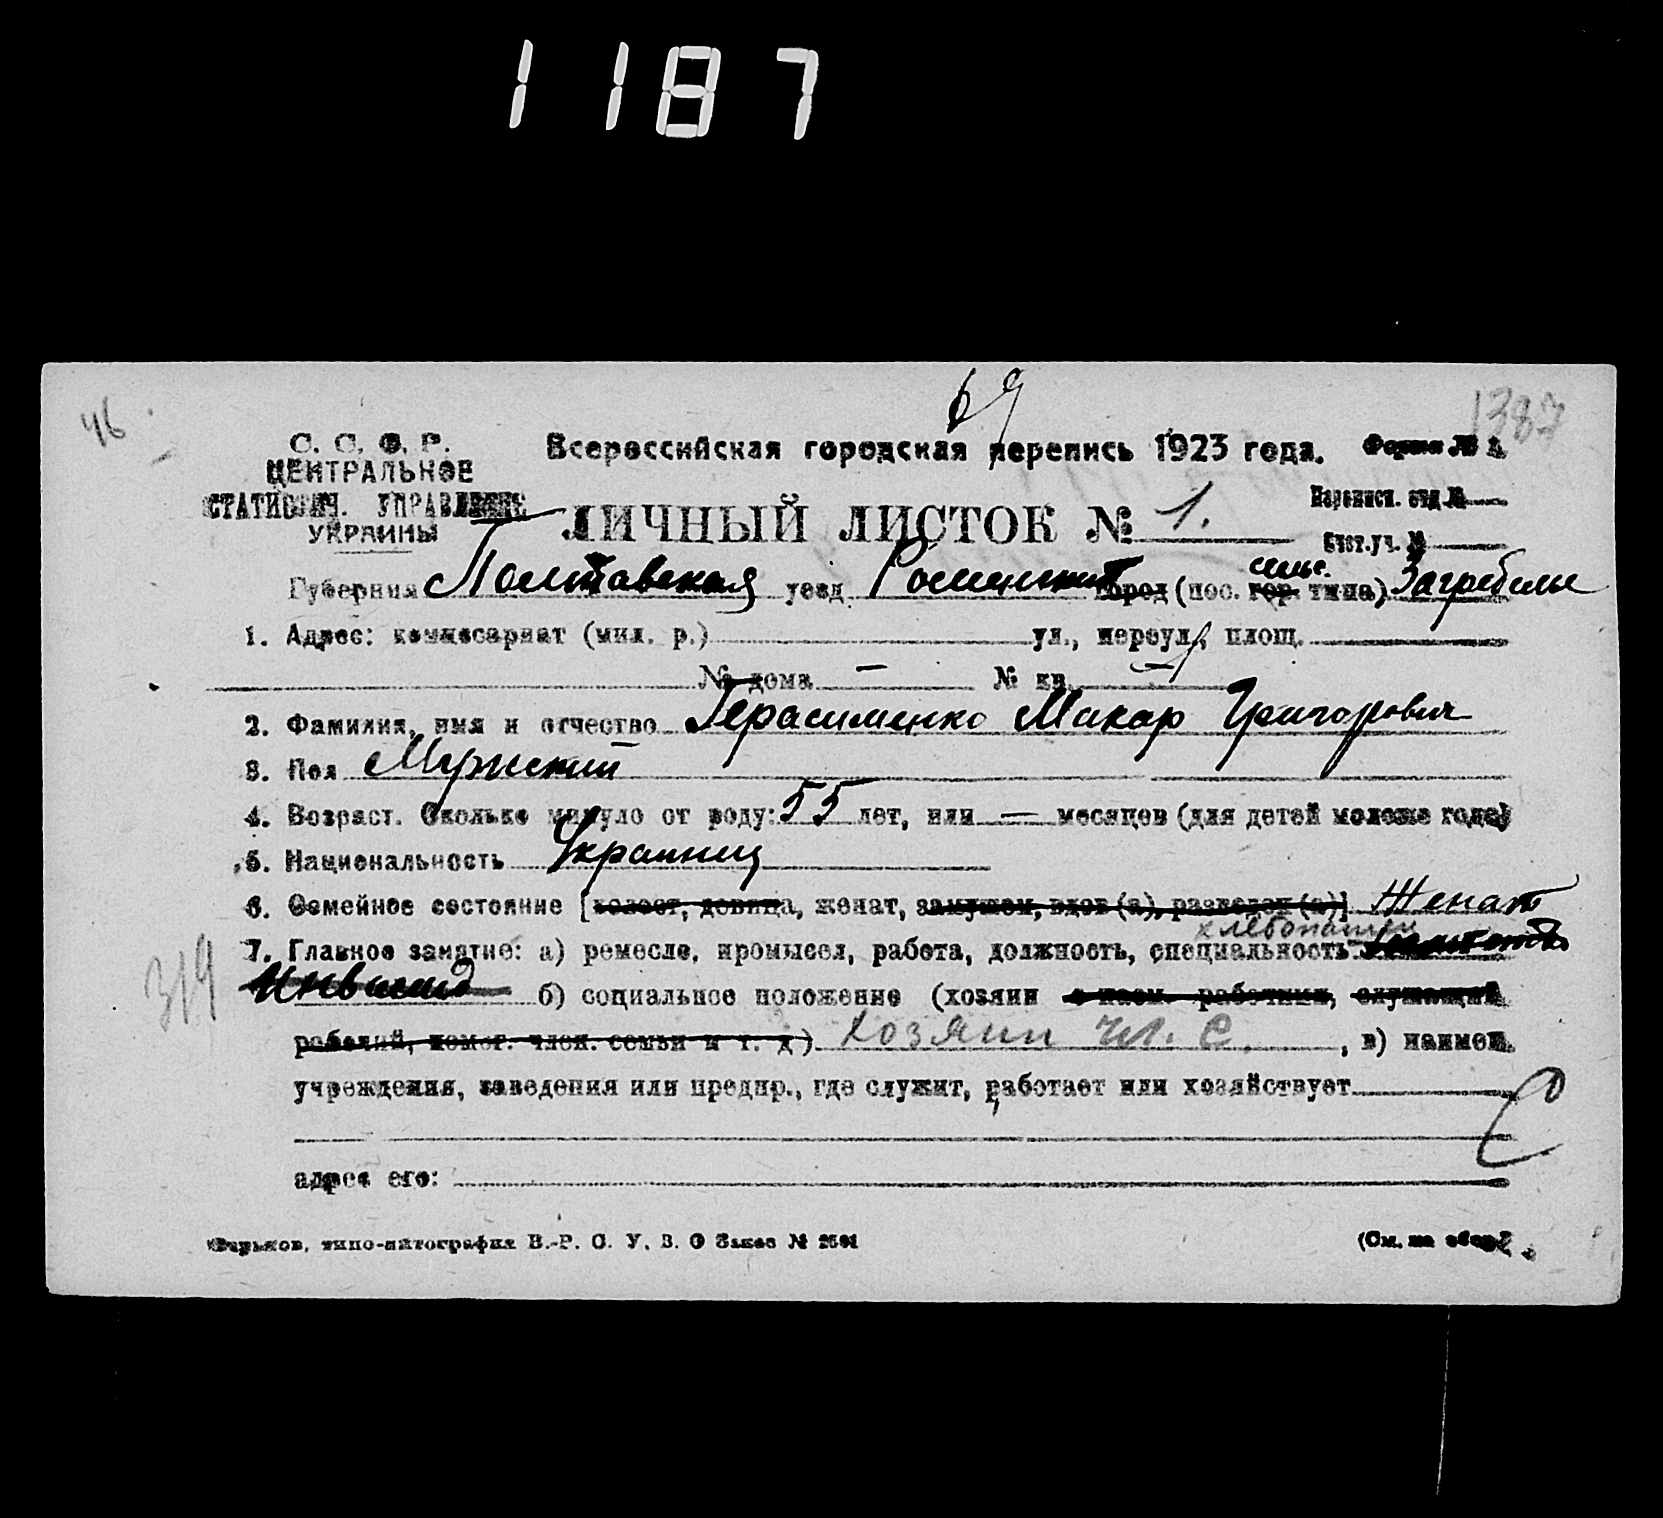 1187
69
46
1387
С. С. Ф. Р.
ЦЕНТРАЛЬНОЕ
СТАТИСТИЧ. УПРАВЛЕНИЕ
УКРАИНЫ
Всероссийская городская перепись 1923 года.
Форма № 1.
ЛИЧНЫЙ ЛИСТОК № 1.
Переписн. отд №
Счет.уч. №
Губерния Полтавская уезд Роменский город (пос. гор. сельс. типа) Загребелье
1. Адрес: комиссариат (мил. р.) ул., переул., площ.
№ дома — № кв. —
2. Фамилия, имя и отчество Герасименко Макар Григорович
3. Пол Мужский
4. Возраст. Сколько минуло от роду: 55 лет, или — месяцев (для детей моложе года)
5. Национальность Украинец
6. Семейное состояние [холост, девица, женат, замужем, вдов (а), разведен (а)] Женат
хлебопашец
7. Главное занятие: а) ремесло, промысел, работа, должность, специальность
319
Инвалид б) социальное положение (хозяин с наем. работник, служащий,
рабочий, помог. член. семьи и т. д.) хозяин чл. с. , в) наимен.
учреждения, заведения или предпр., где служит, работает или хозяйствует
адрес его:
Харьков, типо-литография В.-Р. С. У. В. О Заказ №
(См. на обор.)